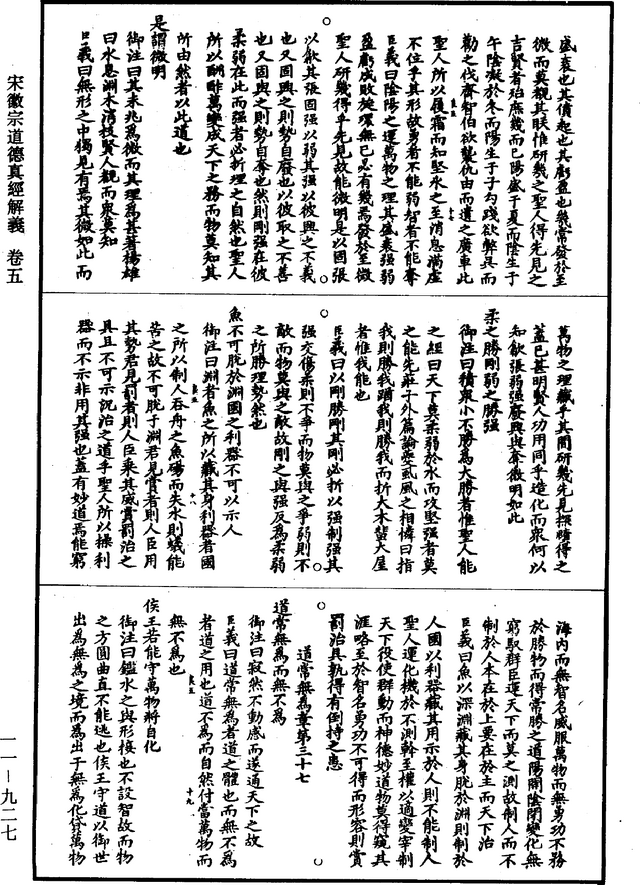 宋徽宗道德真經解義 卷五
盛衰也其僨起也其虧盈也幾常發於至
微而莫覩其朕惟研幾之聖人得先見之
吉賢者殆庶幾而已陽盛于夏而陰生于
午陰凝於冬而陽生于子勾踐欲弊吳而
勸之伐齊智伯欲襲仇由而遺之廣車此
聖人所以履霜而知堅冰之至消息滿虛
不位乎其形故勇者不能弱智者不能奪
臣義曰陰陽之運萬物之理其盛衰強弱
盈虧成敗旋環無已必有幾焉發於至微
聖人研幾得乎先見故能微明是以固張
以歙其張固強以弱其強以彼興之不義
也又固興之則勢自廢也以彼取之不善
也又固與之則勢自奪也然則剛強在彼
柔弱在此而強者必折理之自然也聖人
所以酬酢萬變成天下之務而物莫知其
所由然者以此道也
是謂微明
御注曰其未兆為微而其理為甚著楊雄
曰水息淵木消枝賢人覩而衆莫知
臣義曰無形之中獨見有焉其微如此而
萬物之理藏乎其間研幾先見探賾得之
蓋已甚明賢人功用同乎造化而衆何以
知歙張弱強廢興與奪微明如此
柔之勝剛弱之勝強
御注曰積衆小不勝為大勝者惟聖人能
之經曰天下莫柔弱於水而攻堅強者莫
之能先莊子外篇論夔虵風之相憐曰指
我則勝我蹈我則勝我而折大木蜚大屋
者惟我能也
臣義曰以剛勝剛其剛必折以強制強其
強交傷柔則不爭而物莫與之爭弱則不
敵而物莫與之敵故剛之與強反為柔弱
之所勝理勢然也
魚不可脫於淵國之利器不可以示人
御注曰淵者魚之所以藏其身利器者國
之所以制人吞舟之魚碭而失水則蟻能
苦之故不可脫于淵君見賞者則人臣用
其勢君見罰者則人臣乘其威賞罰治之
具且不可示況治之道乎聖人所以操利
器而不示非用其強也蓋有妙道焉能窮
海內而無智名威服萬物而無勇功不務
於勝物而得常勝之道陽開陰閉變化無
窮馭群臣運天下而莫之測故制人而不
制於人本在於上要在於主而天下治
臣義曰魚以深淵藏其身脫於淵則制於
人國以利器藏其用示於人則不能制人
聖人運化機於不測幹至權以適變宰制
天下役使群動而神德妙道物莫得窺其
涯略至於智名勇功不可得而形容則賞
罰治具孰得有倒持之患
道常無為章第三十七
道常無為而無不為
御注曰寂然不動感而遂通天下之故
臣義曰道常無為者道之體也而無不為
者道之用也道不為而自然付當萬物而
無不為也
侯王若能守萬物將自化
御注曰鑑水之與形接也不設智故而物
之方圓曲直不能逃也侯王守道以御世
出為無為之境而為出于無為化貸萬物
一一－九二七